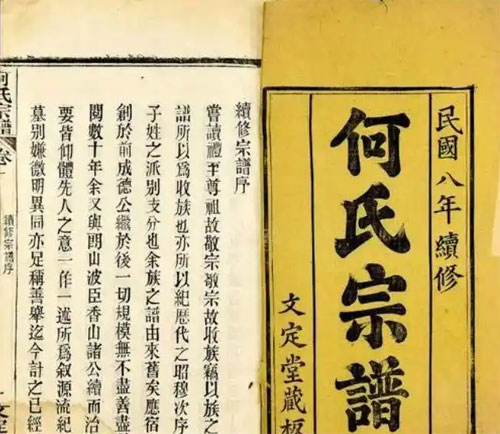 民國八年續修
何氏宗譜
文定堂藏板
續修宗譜序
嘗讀禮至尊祖故敬宗敬宗故收族竊以族
譜所以爲收族也亦所以紀歷代之昭穆次序
子姓之派別支分也余族之譜由來舊矣應宿
創於前成德公繼於後一切規模無不盡善盡
閱數十年余又與朗山波臣香山諸公續而治
要皆仰體先人之意一作一述所爲叙源流紀
墓別嫌微明異同亦足稱善舉迄今計之已經
何氏宗譜
卷
續修宗譜序
文定